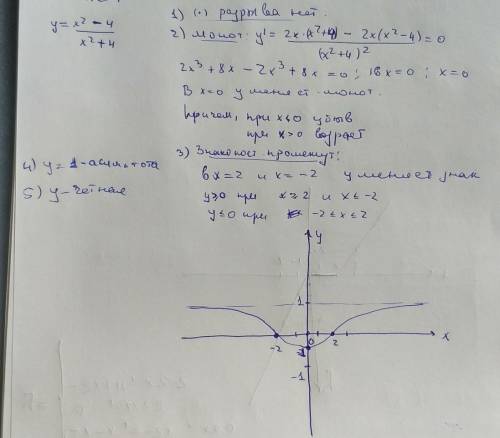 y = x² − 4 / x² + 4
1) (·) разрыва нет.
2) Монот: y' = 2x·(x²+4) − 2x(x²−4) / (x²+4)² = 0
2x³ + 8x − 2x³ + 8x = 0 ; 16x = 0 ; x = 0
В x=0 y меняет монот.
Причем, при x<0 убыв
при x>0 возраст
3) Знакопост. промежут:
в x=2 и x=−2 y меняет знак
y≥0 при x≥2 и x≤−2
y≤0 при −2≤x≤2
4) y=1 – асимптота
5) y – четная
y
1
−2
0
2
x
−1
−1